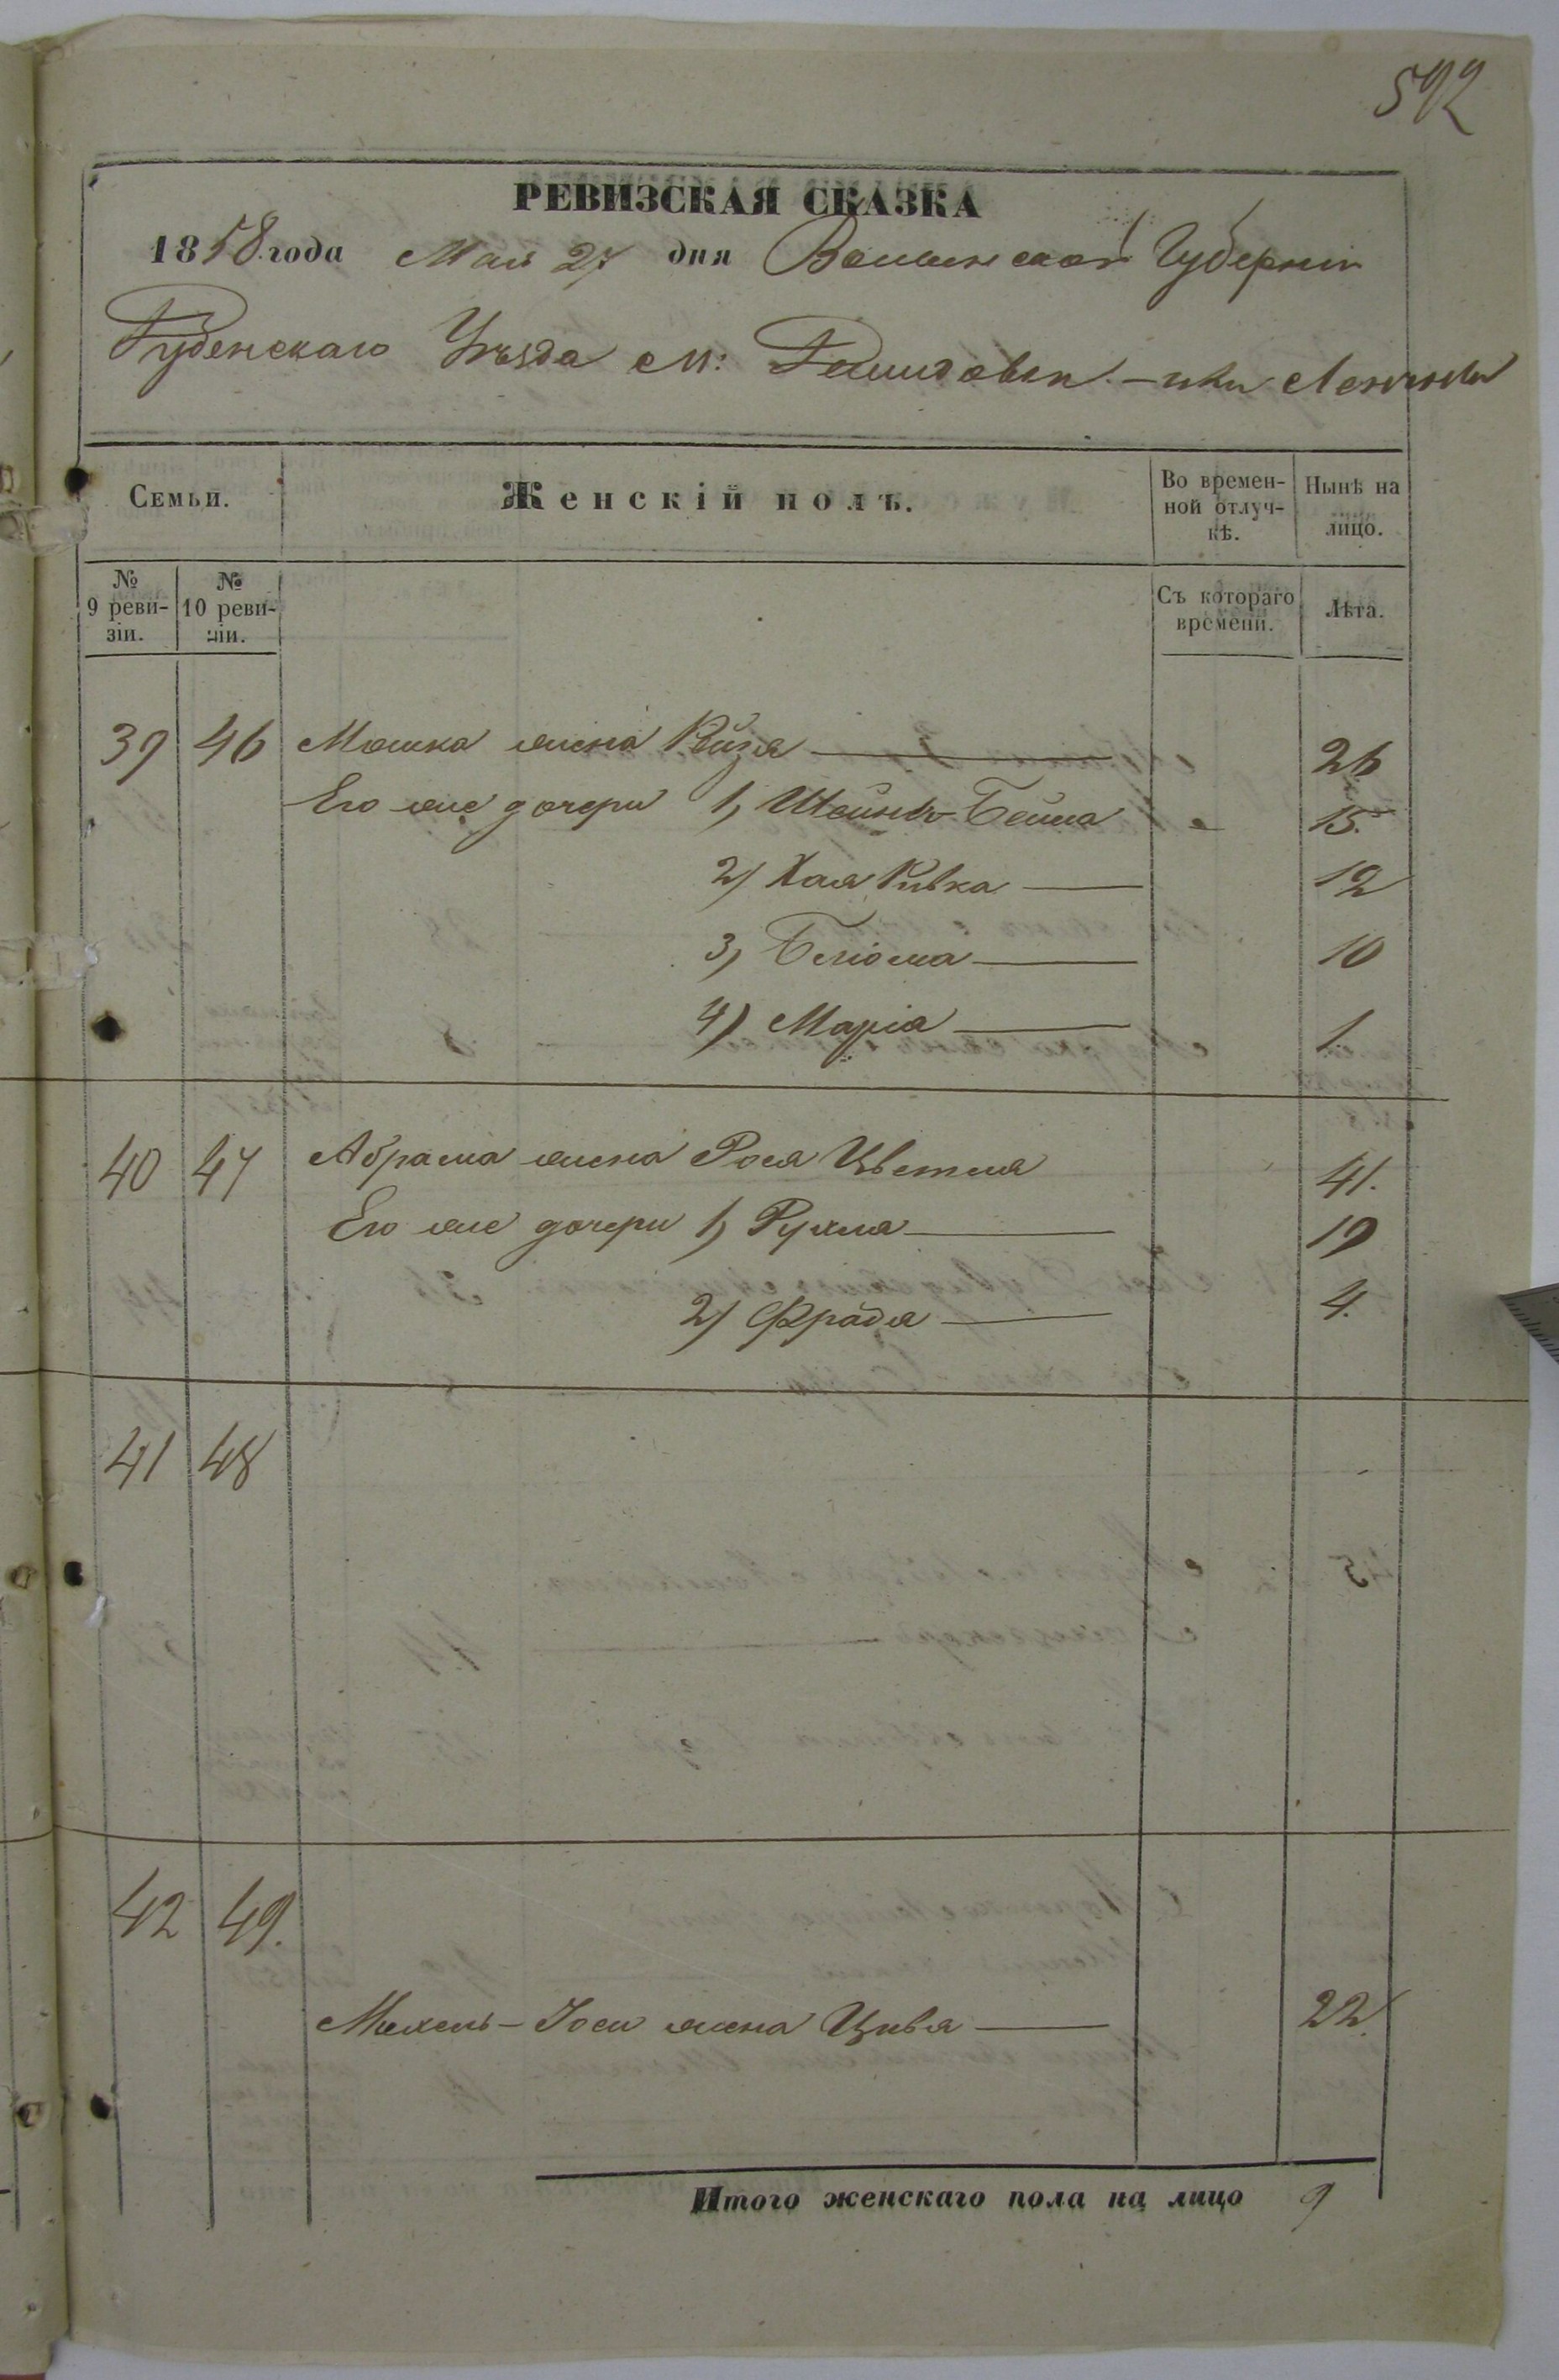 592
РЕВИЗСКАЯ СКАЗКА
1858 года Мая 27 дня Волынской Губерніи
Дубенскаго Уѣзда М:
Семьи. Женскій полъ. Во временной отлучкѣ. Нынѣ на лицо.
№ 9 ревизіи. № 10 ревизіи. Съ котораго времени. Лѣта.
39 46 Мошка жена Рейзя 26
Его же дочери 1) Шейндъ-Бейла 15.
2) Хая Ривка 12
3) Блюма 10
4) Марія 1.
40 47 Абрама жена Рося Цветля 41.
Его же дочери 1) Рухля 19
2) Фрадя 4.
41 48
42 49.
Мехель-Іося жена Цивя 22.
Итого женскаго пола на лицо 9